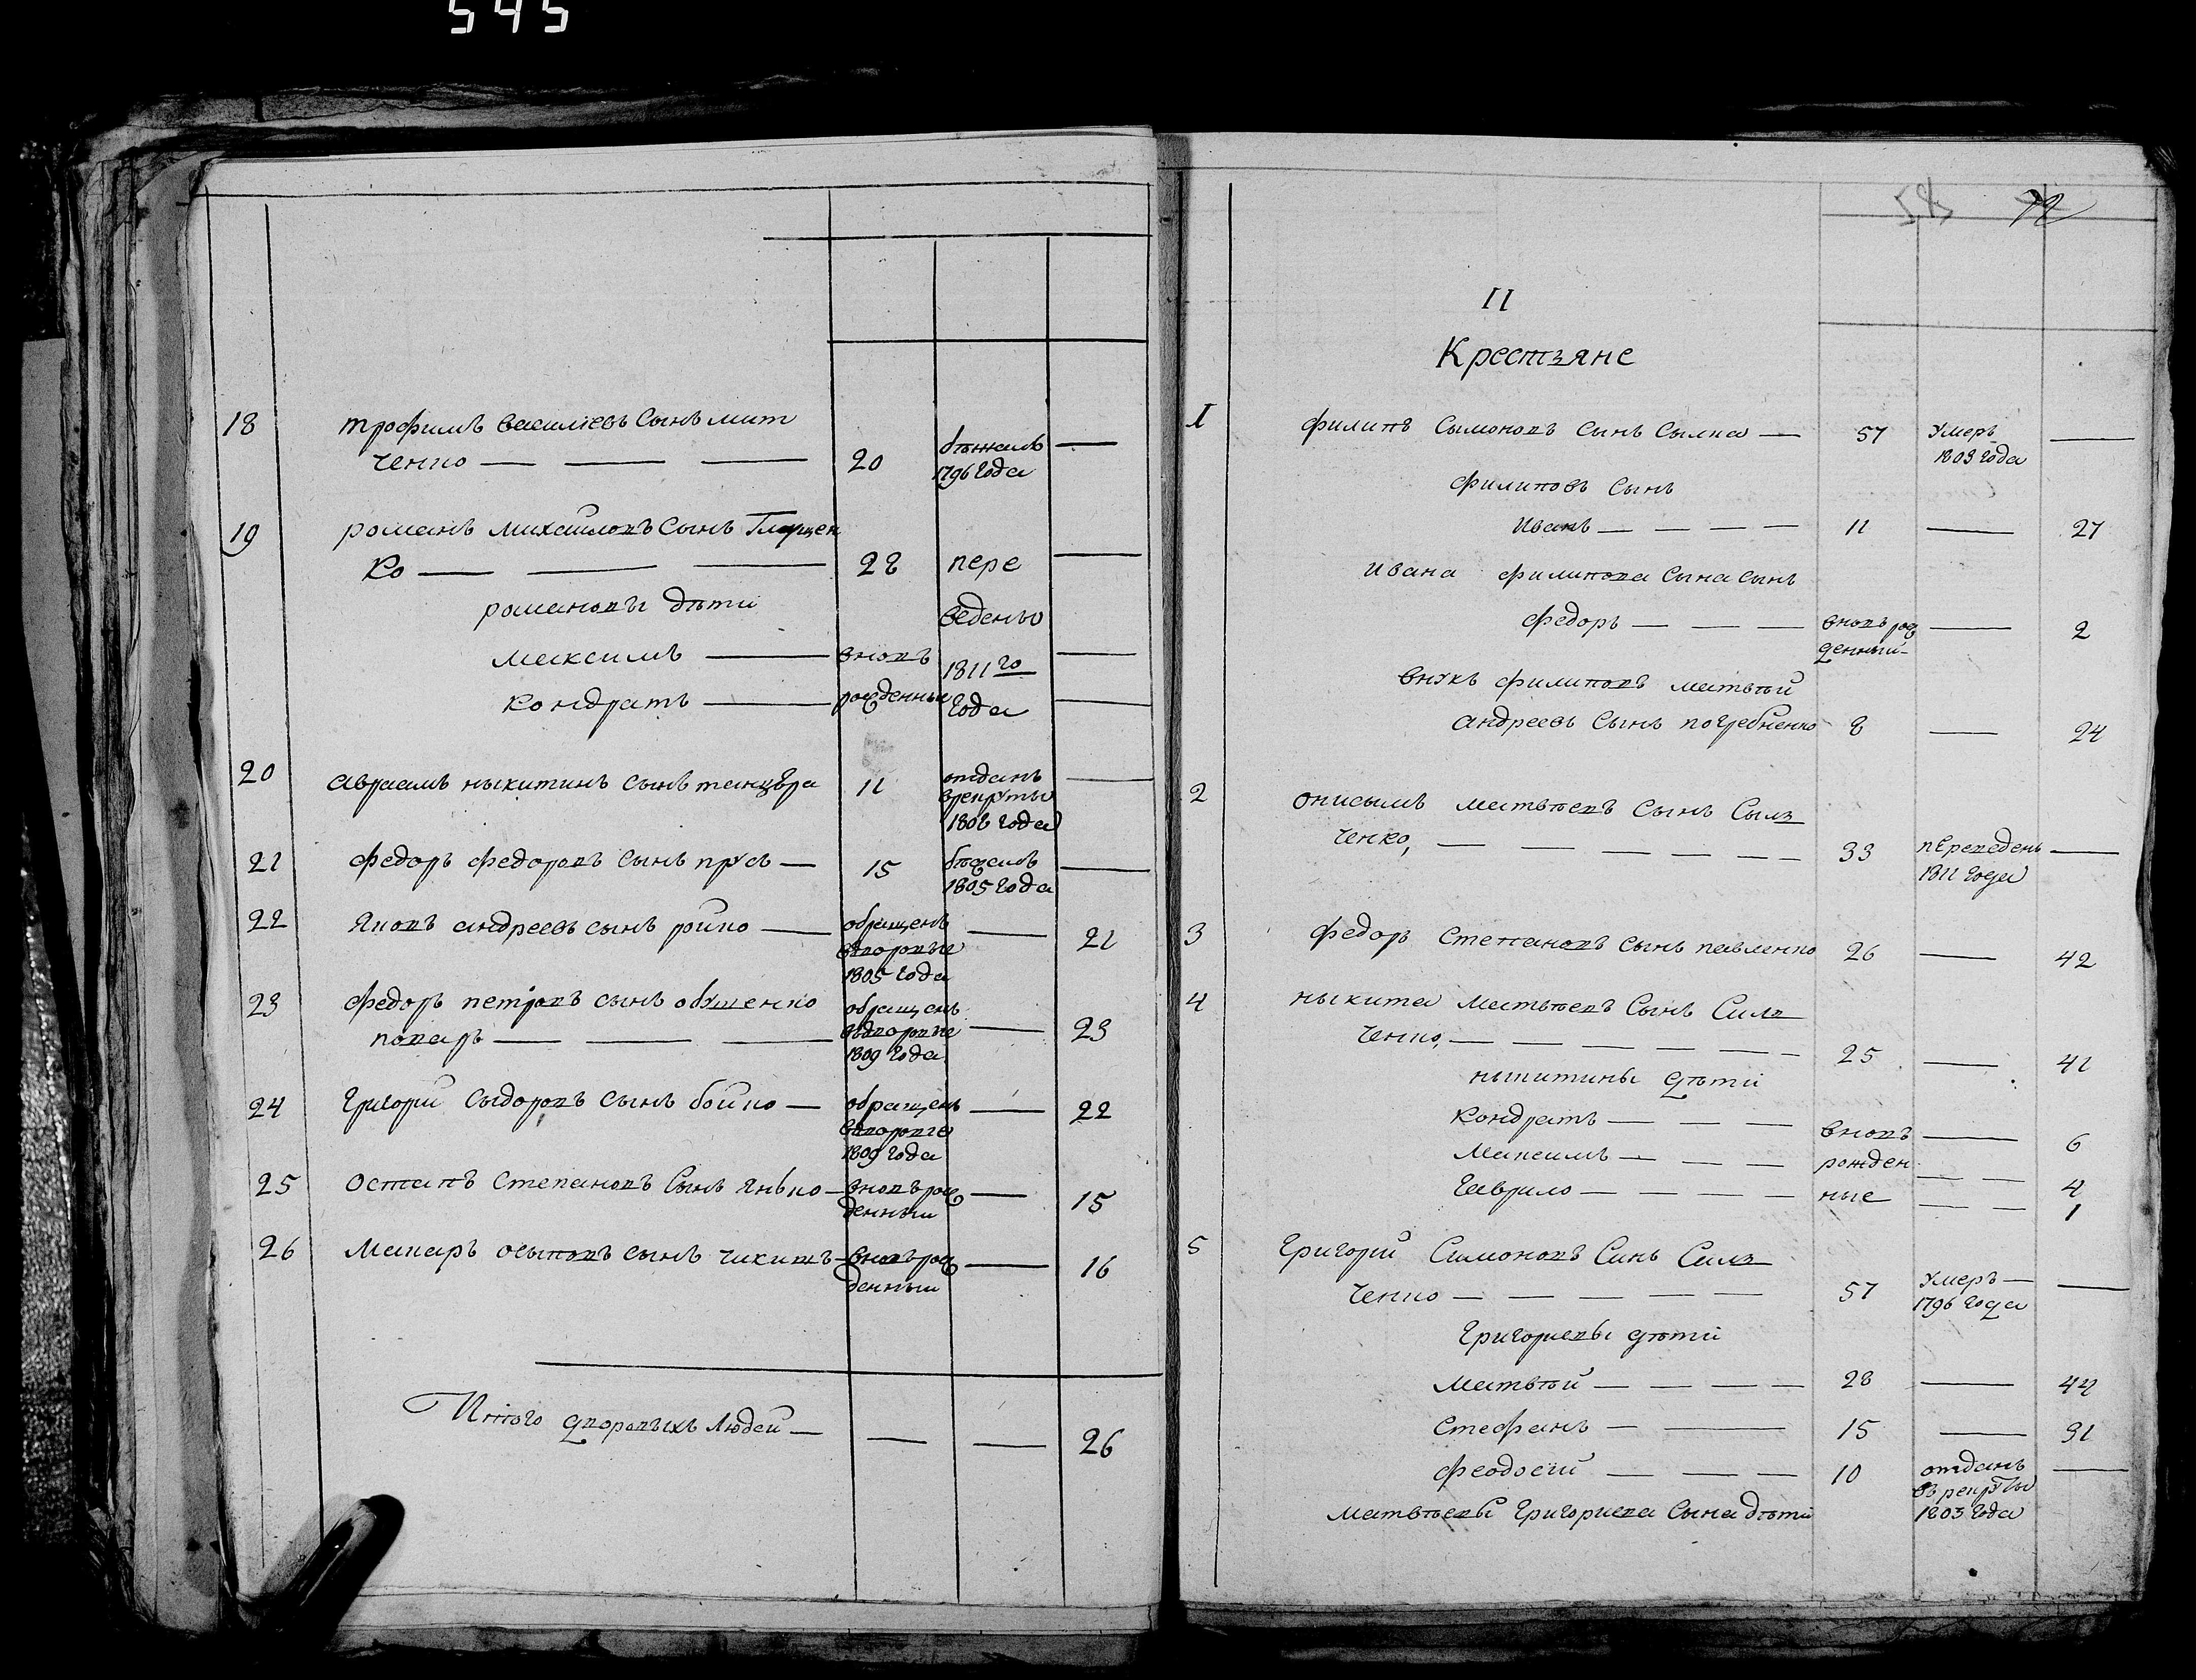 545
18 трофимъ василіевъ сынъ мит
ченко — — — 20 бѣжалъ 1796 года —
19 романъ михайловъ сынъ
ко — — — 28 пере —
романовы дѣти ведены
максимъ — вновь 1811го —
кондратъ — рожденныи года —
20 авраамъ никитинъ сынъ танцюра 11 отданъ —
врекруты
1808 года
21 федоръ федоровъ сынъ прусъ — 15 бѣжалъ —
1805 года
22 Яковъ андреевъ сынъ ройко — обращенъ — 21
вдворовые
1805 года
23 федоръ петровъ сынъ обушенко обращенъ
поваръ — — — вдворовые — 23
1809 года
24 Григорій сыдоровъ сынъ бойко — обращенъ — 22
вдворовые
1809 года
25 Остапъ степановъ сынъ янько — вновь рож — 15
денныи
26 Макаръ осыповъ сынъ чикишъ — вновь рож — 16
денныи
Итого дворовыхъ людей — — — 26
58 72
II
Крестьяне
1 филипъ сымоновъ сынъ сылка — 57 умеръ —
1803 года
филиповъ сынъ
иванъ — — — — 11 — 27
ивана филипова сына сынъ
федоръ — — — вновь рож — 2
денныи
внукъ филиповъ матвѣй
андреевъ сынъ погребненко 8 — 24
2 онисымъ матвѣевъ сынъ сыль
ченко, — — — — — — 33 переведенъ —
1811 года
3 федоръ степановъ сынъ павленко 26 — 42
4 никита матвѣевъ сынъ силь
ченко, — — — — — — 25 — 41
никитины дѣти
кондратъ — — — вновь — 6
максимъ — — — рожден — — 4
гаврило — — — — ные — — 1
5 григорій симоновъ синъ силь
ченко — — — — — 57 умеръ — —
1796 года
григориевы дѣти
матвѣй — — — — 28 — 44
стефанъ — — 15 — 31
феодосій — — — 10 отданъ —
въ рекруты
матвѣевы григориева сына дѣти 1803 года